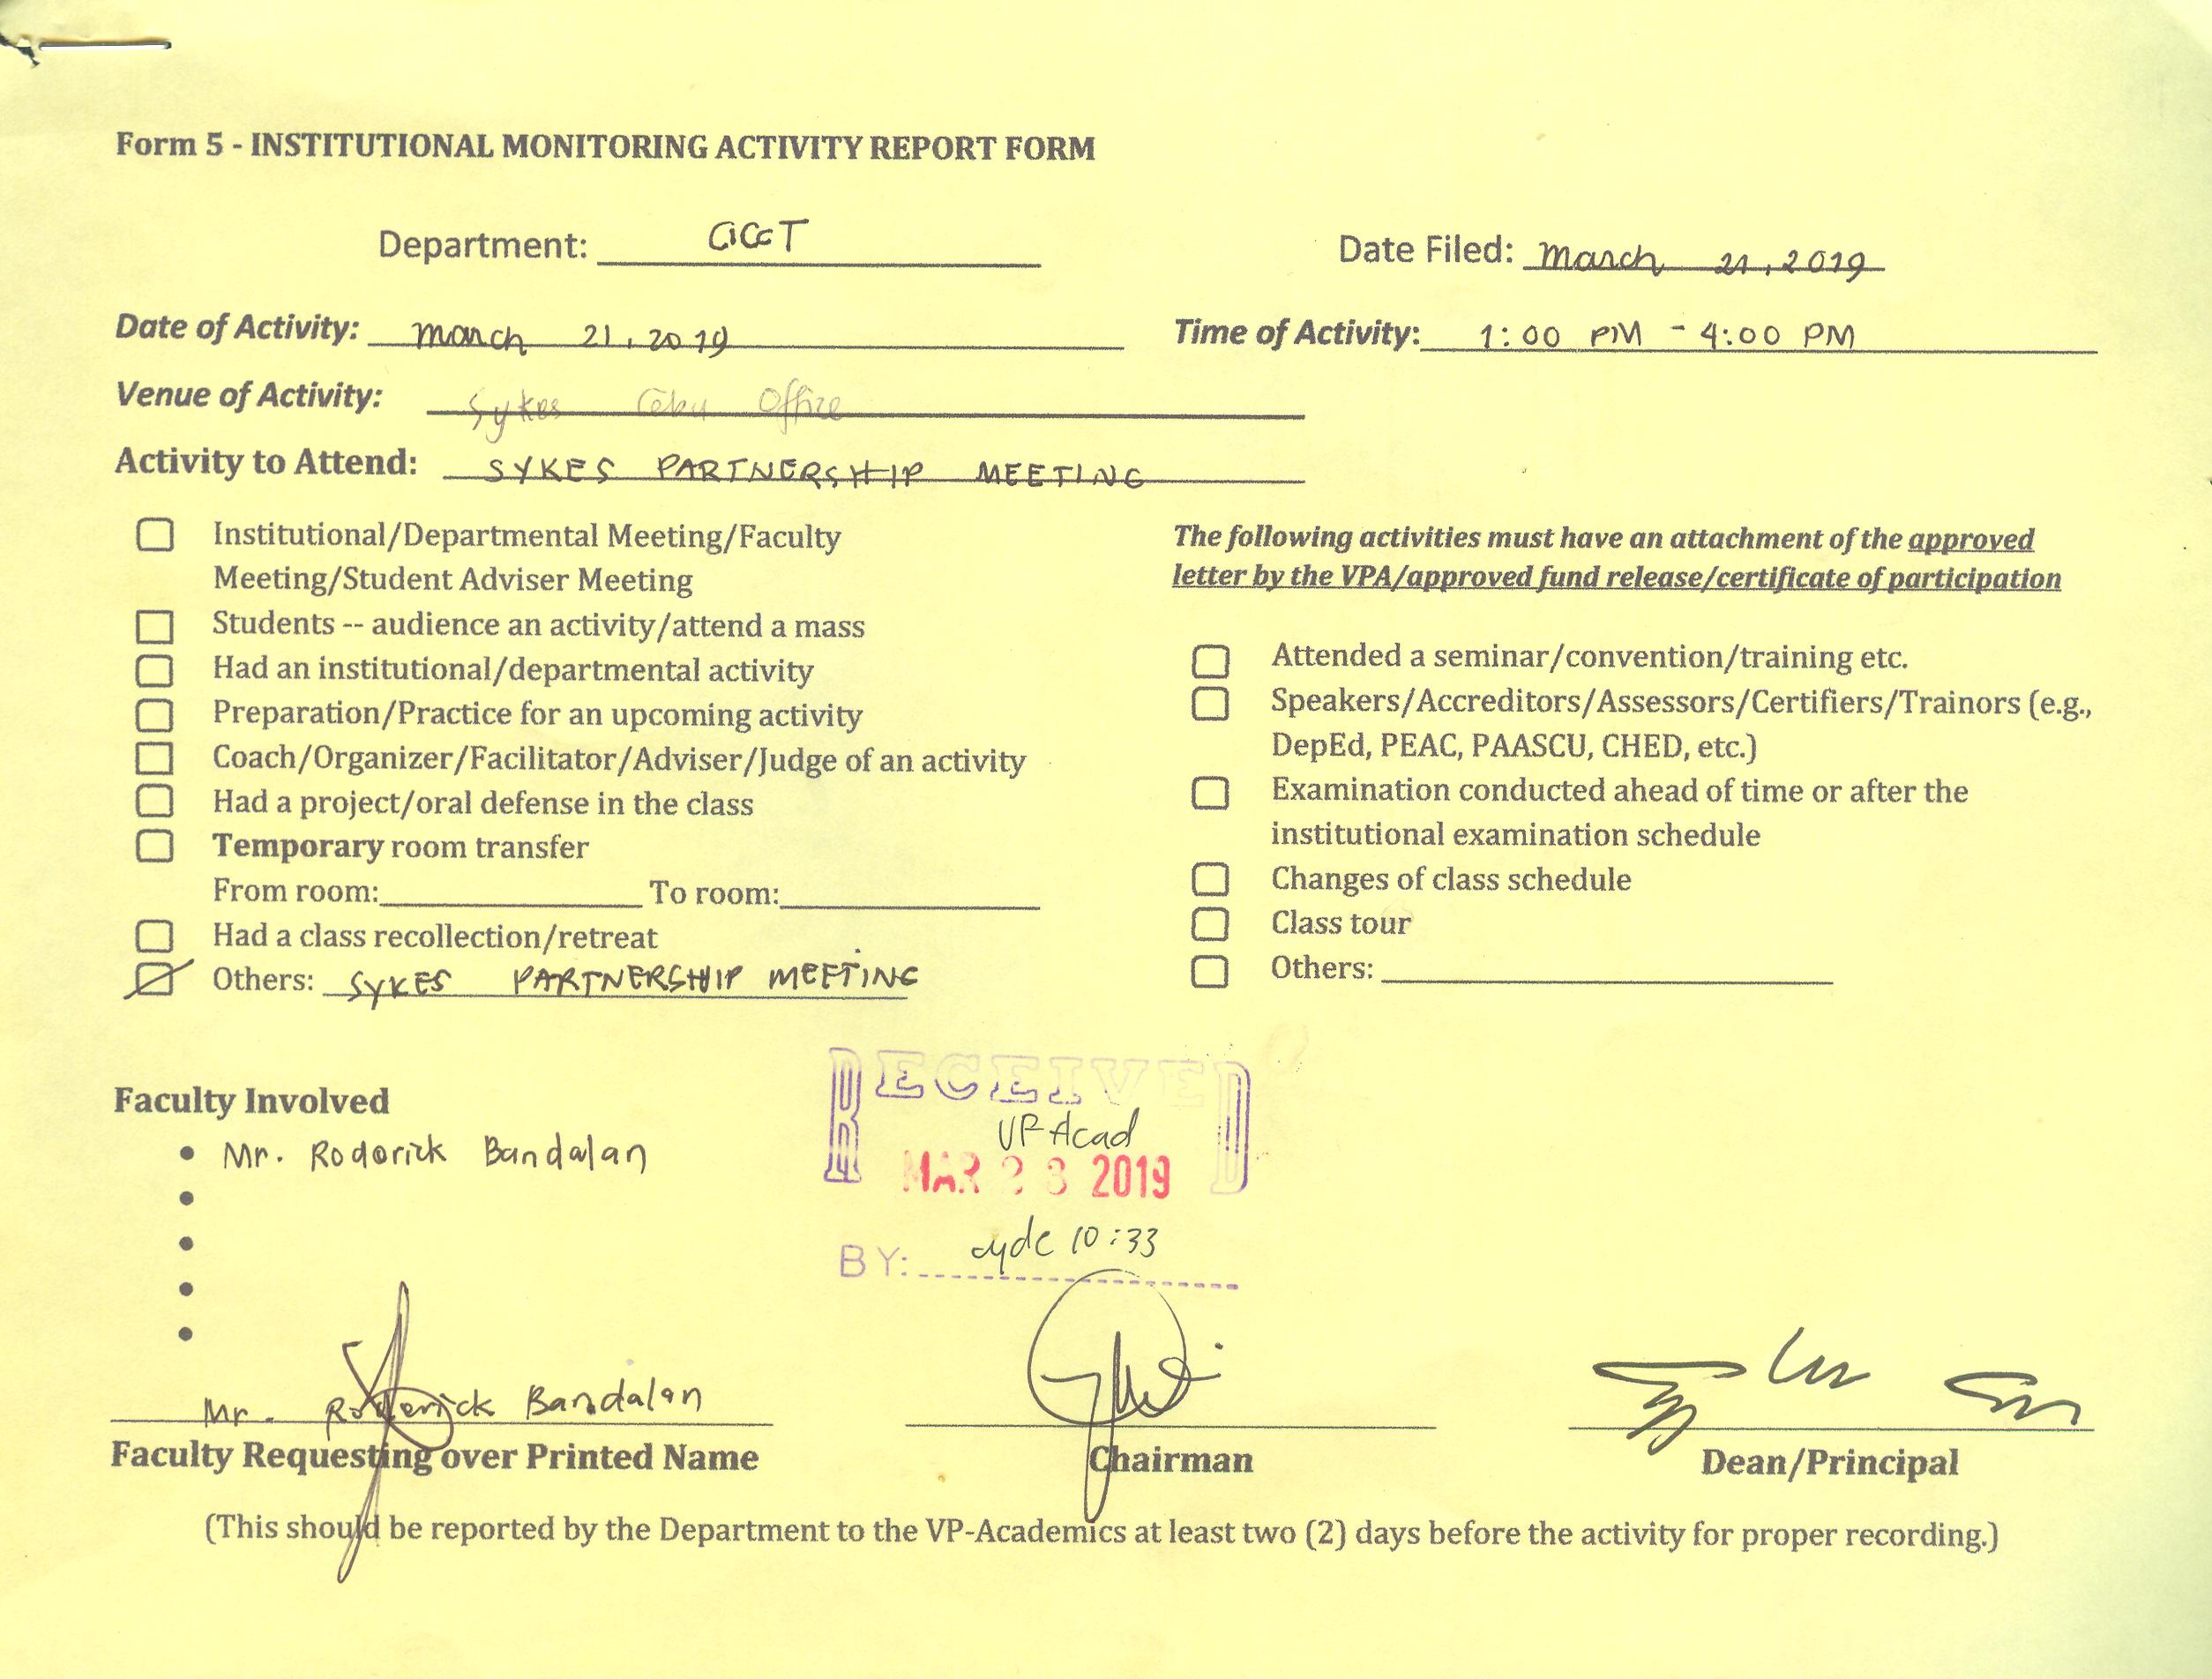 Form 5 - INSTITUTIONAL MONITORING ACTIVITY REPORT FORM
Department: CICCT
Date Filed: March 21, 2019
Date of Activity: March 21, 2019
Time of Activity: 1:00 PM - 4:00 PM
Venue of Activity: Sykes Cebu Office
Activity to Attend: SYKES PARTNERSHIP MEETING
Institutional/Departmental Meeting/Faculty
Meeting/Student Adviser Meeting
Students -- audience an activity/attend a mass
Had an institutional/departmental activity
Preparation/Practice for an upcoming activity
Coach/Organizer/Facilitator/Adviser/Judge of an activity
Had a project/oral defense in the class
Temporary room transfer
From room: To room:
Had a class recollection/retreat
Others: SYKES PARTNERSHIP MEETING
The following activities must have an attachment of the approved
letter by the VPA/approved fund release/certificate of participation
Attended a seminar/convention/training etc.
Speakers/Accreditors/Assessors/Certifiers/Trainors (e.g.,
DepEd, PEAC, PAASCU, CHED, etc.)
Examination conducted ahead of time or after the
institutional examination schedule
Changes of class schedule
Class tour
Others:
Faculty Involved
Mr. Roderick Bandalan
RECEIVED
VP Acad
MAR 2019
BY: 10:33
Mr. Roderick Bandalan
Faculty Requesting over Printed Name
Chairman
Dean/Principal
(This should be reported by the Department to the VP-Academics at least two (2) days before the activity for proper recording.)